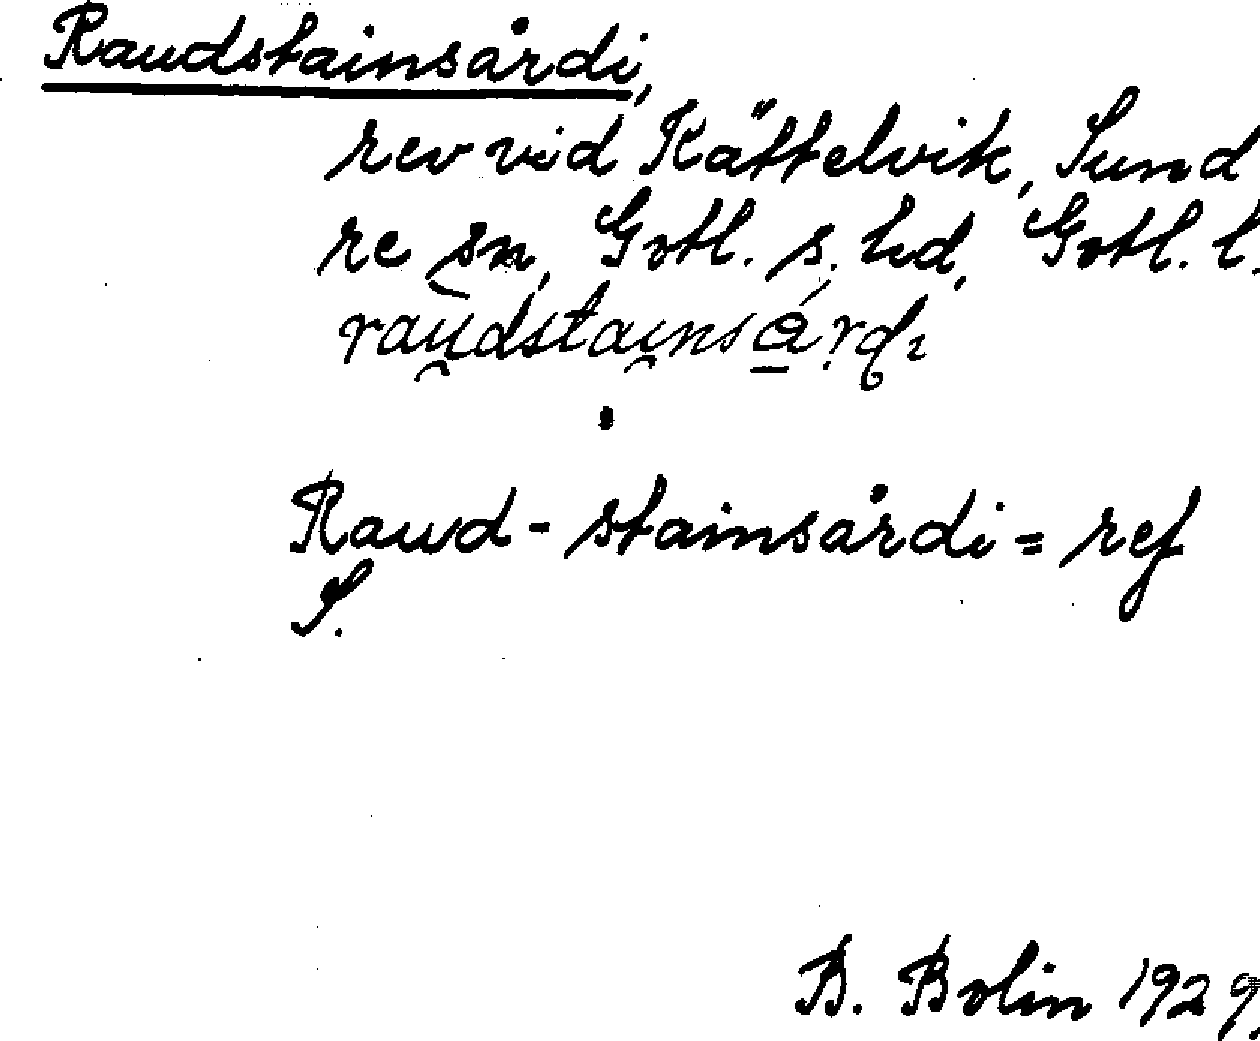 Raudstainsårdi,
rev vid Kättelvik, Sund
re sn, Gotl. s. hd, Gotl. l.
raudstainsårdi
Raud-stainsårdi = ref
S.
B. Bolin 1929